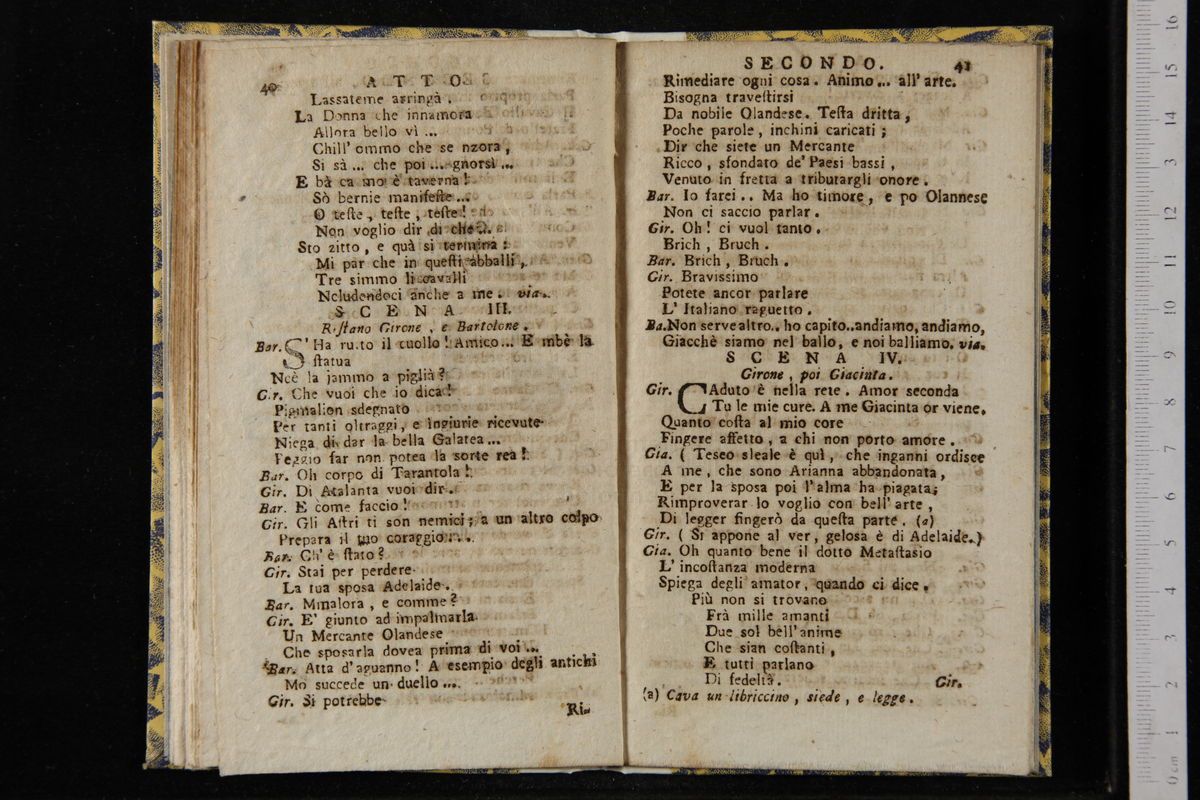 40 ATTO
Lassateme arringà .
La Donna che innamora
Allora bello vì ...
Chill' ommo che se nzora ,
Si sà ... che poi ... gnorsì ...
E bà ca mo è taverna !
Sò bernie manifeſte ...
O teſte , teſte , teſte !
Non voglio dir di che ...
Sto zitto , e quà si termina :
Mi par che in queſti abballi ,
Tre simmo li cavalli
Ncludendoci anche a me . via .
SCENA III.
Reſtano Girone , e Bartolone .
Bar. S' Ha rutto il cuollo ! Amico ... E mbè la
ſtatua
Nce la jammo a piglià ?
Gir. Che vuoi che io dica !
Pigmalion sdegnato
Per tanti oltraggi , e ingiurie ricevute
Niega di dar la bella Galatea ...
Peggio far non potea la sorte rea !
Bar. Oh corpo di Tarantola !
Gir. Di Atalanta vuoi dir .
Bar. E come faccio !
Gir. Gli Aſtri ti son nemici ; a un altro colpo
Prepara il tuo coraggio ...
Bar. Ch' è ſtato ?
Gir. Stai per perdere
La tua sposa Adelaide .
Bar. Mmalora , e comme ?
Gir. E' giunto ad impalmarla
Un Mercante Olandese
Che sposarla dovea prima di voi ...
Bar. Atta d'aguanno ! A esempio degli antichi
Mo succede un duello ....
Gir. Si potrebbe
Ri-
SECONDO. 41
Rimediare ogni cosa . Animo ... all' arte.
Bisogna traveſtirsi
Da nobile Olandese . Teſta dritta ,
Poche parole , inchini caricati ;
Dir che siete un Mercante
Ricco , sfondato de' Paesi bassi ,
Venuto in fretta a tributargli onore .
Bar. Io farei .. Ma ho timore , e po Olannese
Non ci saccio parlar .
Gir. Oh ! ci vuol tanto .
Brich , Bruch .
Bar. Brich , Bruch .
Gir. Bravissimo
Potete ancor parlare
L' Italiano raguetto .
Ba. Non serve altro .. ho capito .. andiamo, andiamo,
Giacchè siamo nel ballo, e noi balliamo. via.
SCENA IV.
Girone , poi Giacinta.
Gir. CAduto è nella rete . Amor seconda
Tu le mie cure. A me Giacinta or viene.
Quanto coſta al mio core
Fingere affetto , a chi non porto amore .
Gia. ( Teseo sleale è quì , che inganni ordisce
A me , che sono Arianna abbandonata ,
E per la sposa poi l'alma ha piagata;
Rimproverar lo voglio con bell' arte ,
Di legger fingerò da queſta parte . (a)
Gir. ( Si appone al ver , gelosa è di Adelaide.)
Gia. Oh quanto bene il dotto Metaſtasio
L' incoſtanza moderna
Spiega degli amator , quando ci dice .
Più non si trovano
Frà mille amanti
Due sol bell' anime
Che sian coſtanti ,
E tutti parlano
Di fedeltà .
Gir.
(a) Cava un libriccino , siede , e legge .